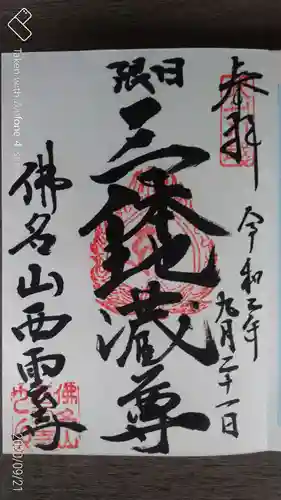 奉拝
令和二年
九月二十一日
日限
三体地蔵尊
佛名山西雲寺
Taken with Zenfone 4
2020/09/21